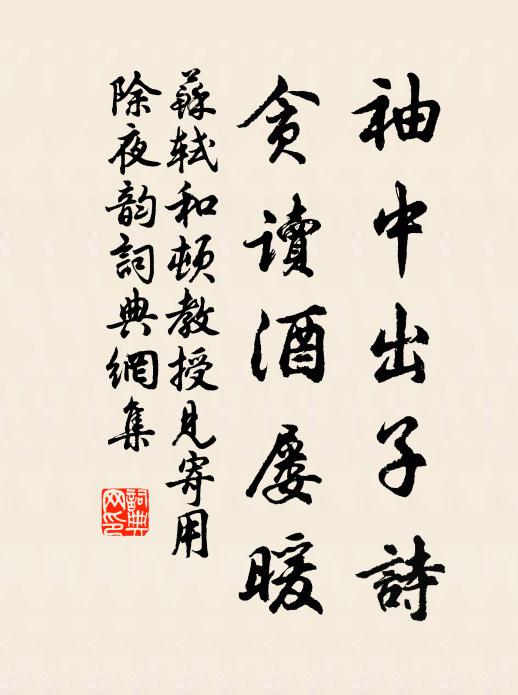 袖中出子詩
貪讀酒屡暖
蘇軾和頓教授見寄用
除夜韵詞典網集
詞典網印